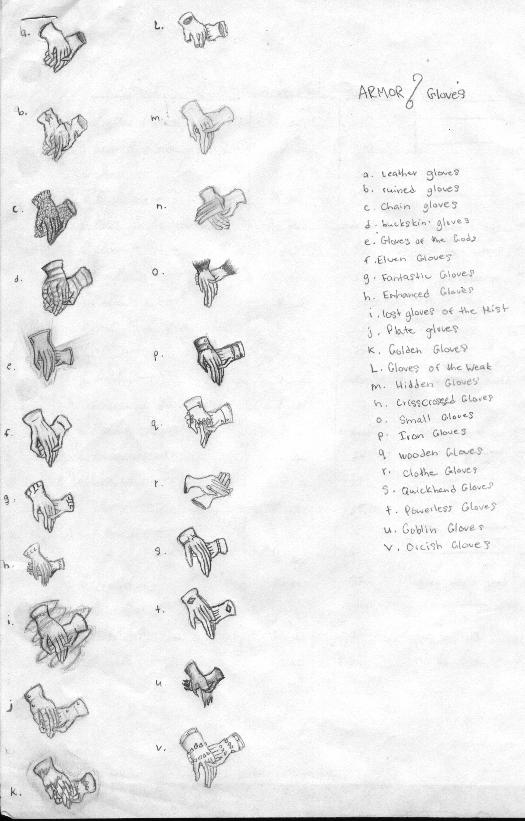 a.
b.
c.
d.
e.
f.
g.
h.
i.
j
k.
L.
m.
n.
o.
p.
q.
r.
s.
t.
u.
v.
ARMOR Gloves
a. Leather gloves
b. ruined gloves
c. Chain gloves
d. buckskin gloves
e. Gloves of the Gods
f. Elven Gloves
g. Fantastic Gloves
h. Enhanced Gloves
i. lost gloves of the Mist
j. Plate gloves
k. Golden Gloves
L. Gloves of the Weak
m. Hidden Gloves
n. Crisscrossed Gloves
o. Small Gloves
p. Iron Gloves
q. Wooden Gloves
r. Clothe Gloves
s. Quickhand Gloves
t. Powerless Gloves
u. Goblin Gloves
v. Orcish Gloves